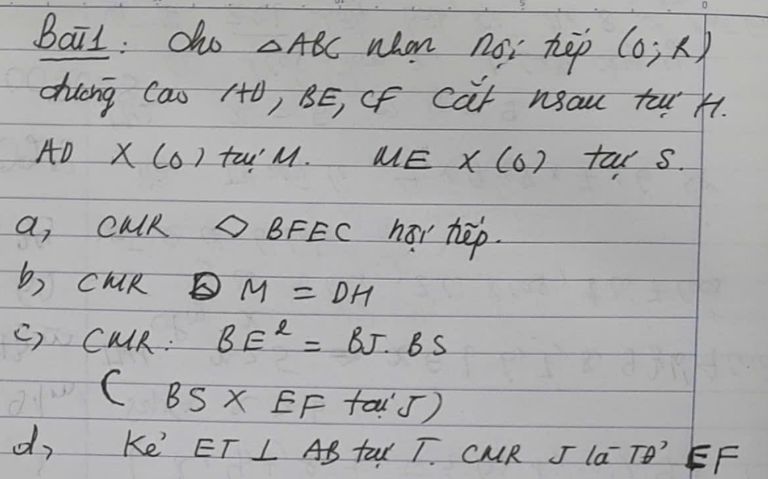 Bài 1: Cho △ABC nhọn nội tiếp (O; R)
đường cao AD, BE, CF cắt nhau tại H.
AD X (O) tại M. ME X (O) tại S.
a, CMR ◇ BFEC nội tiếp.
b, CMR DM = DH
c, CMR: BE² = BJ. BS
( BS X EF tại J)
d, Kẻ ET ⊥ AB tại T. CMR J là TĐ EF